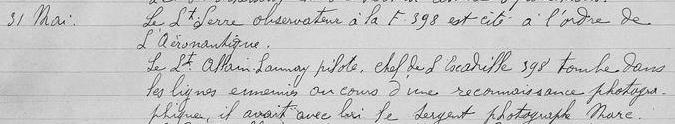 31 Mai. Le Lt Serre observateur à la F 398 est cité à l'ordre de
L'Aéronautique.
Le Lt Allain-Launay pilote, chef de l'Escadrille 398 tombe dans
les lignes ennemies au cours d'une reconnaissance photogra-
phique, il avait avec lui le sergent photographe Marc.